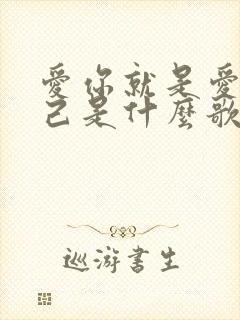 愛你就是愛
己是什麼歌
巡游書生